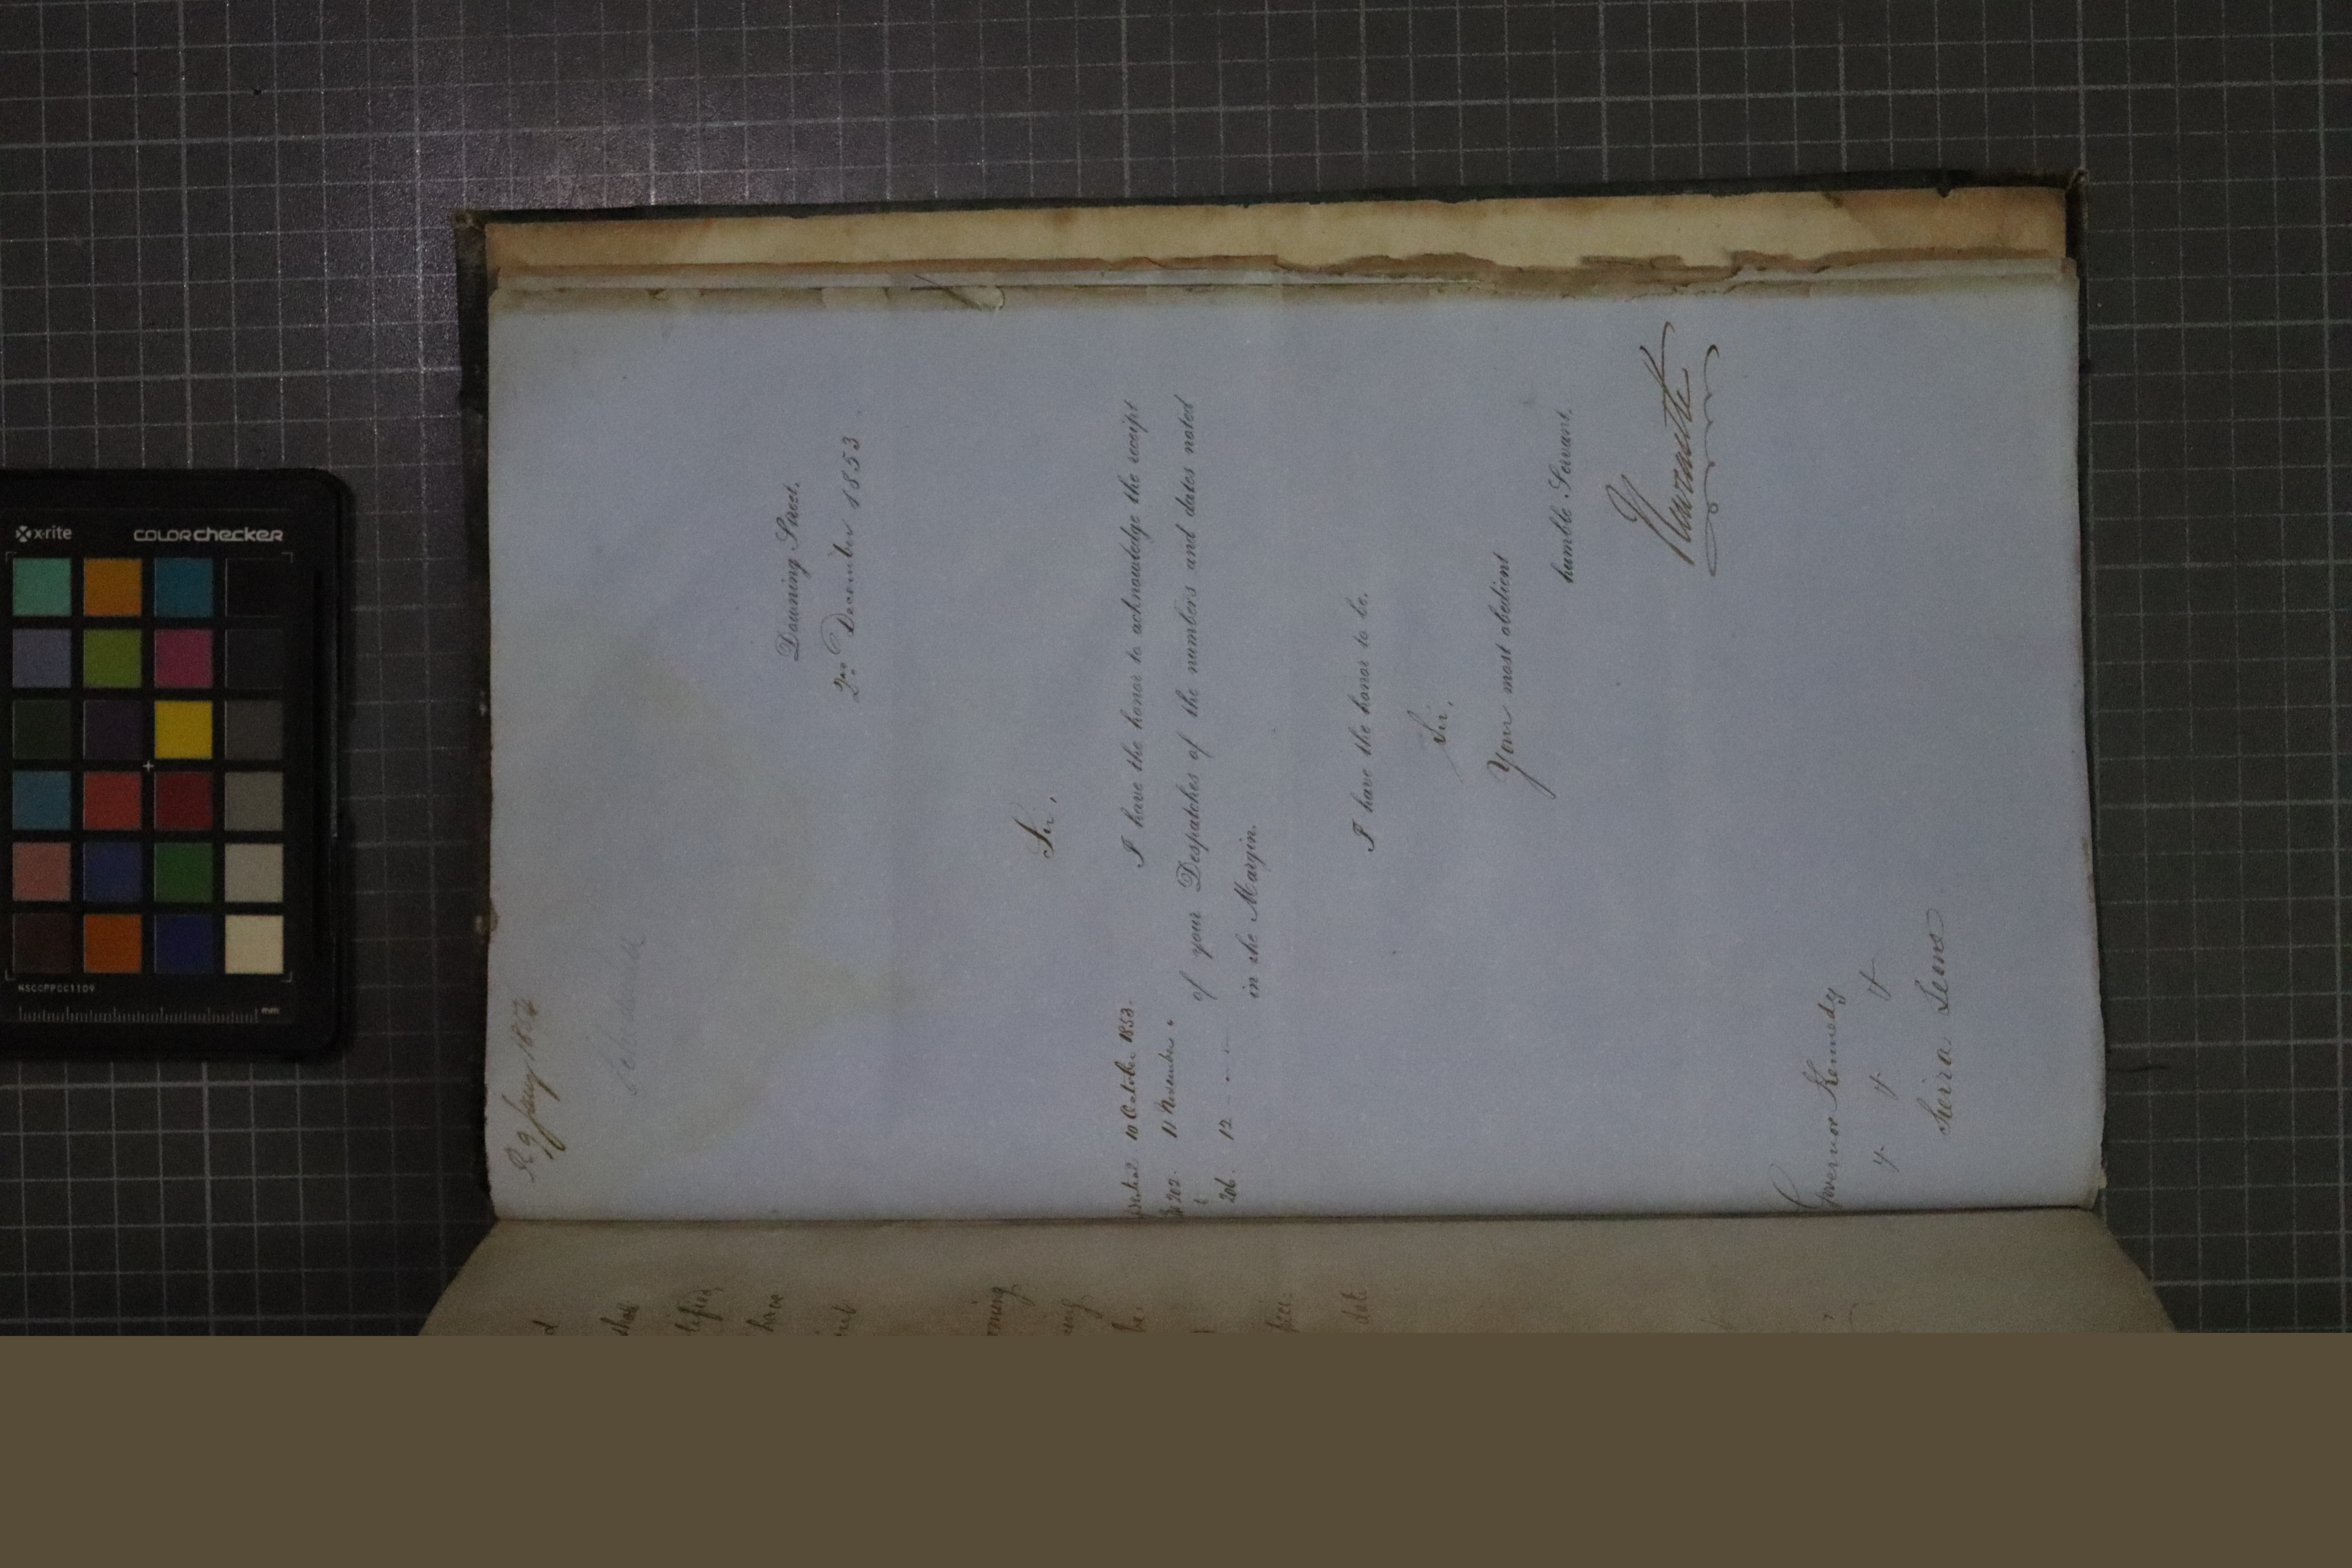 R 9 Jany 1854
Schedule
Downing Street,
2nd December 1853
Sir,
I have the honor to acknowledge the receipt
of your Despatches of the numbers and dates noted
in the Margin.
10 October 1853.
No 202. 11 November "
206. 12 - - -
I have the honor to be,
Sir,
Your most obedient
humble Servant,
Newcastle
Governor Kennedy
&c &c &c
Sierra Leone
have
date
x·rite
colorchecker
mm